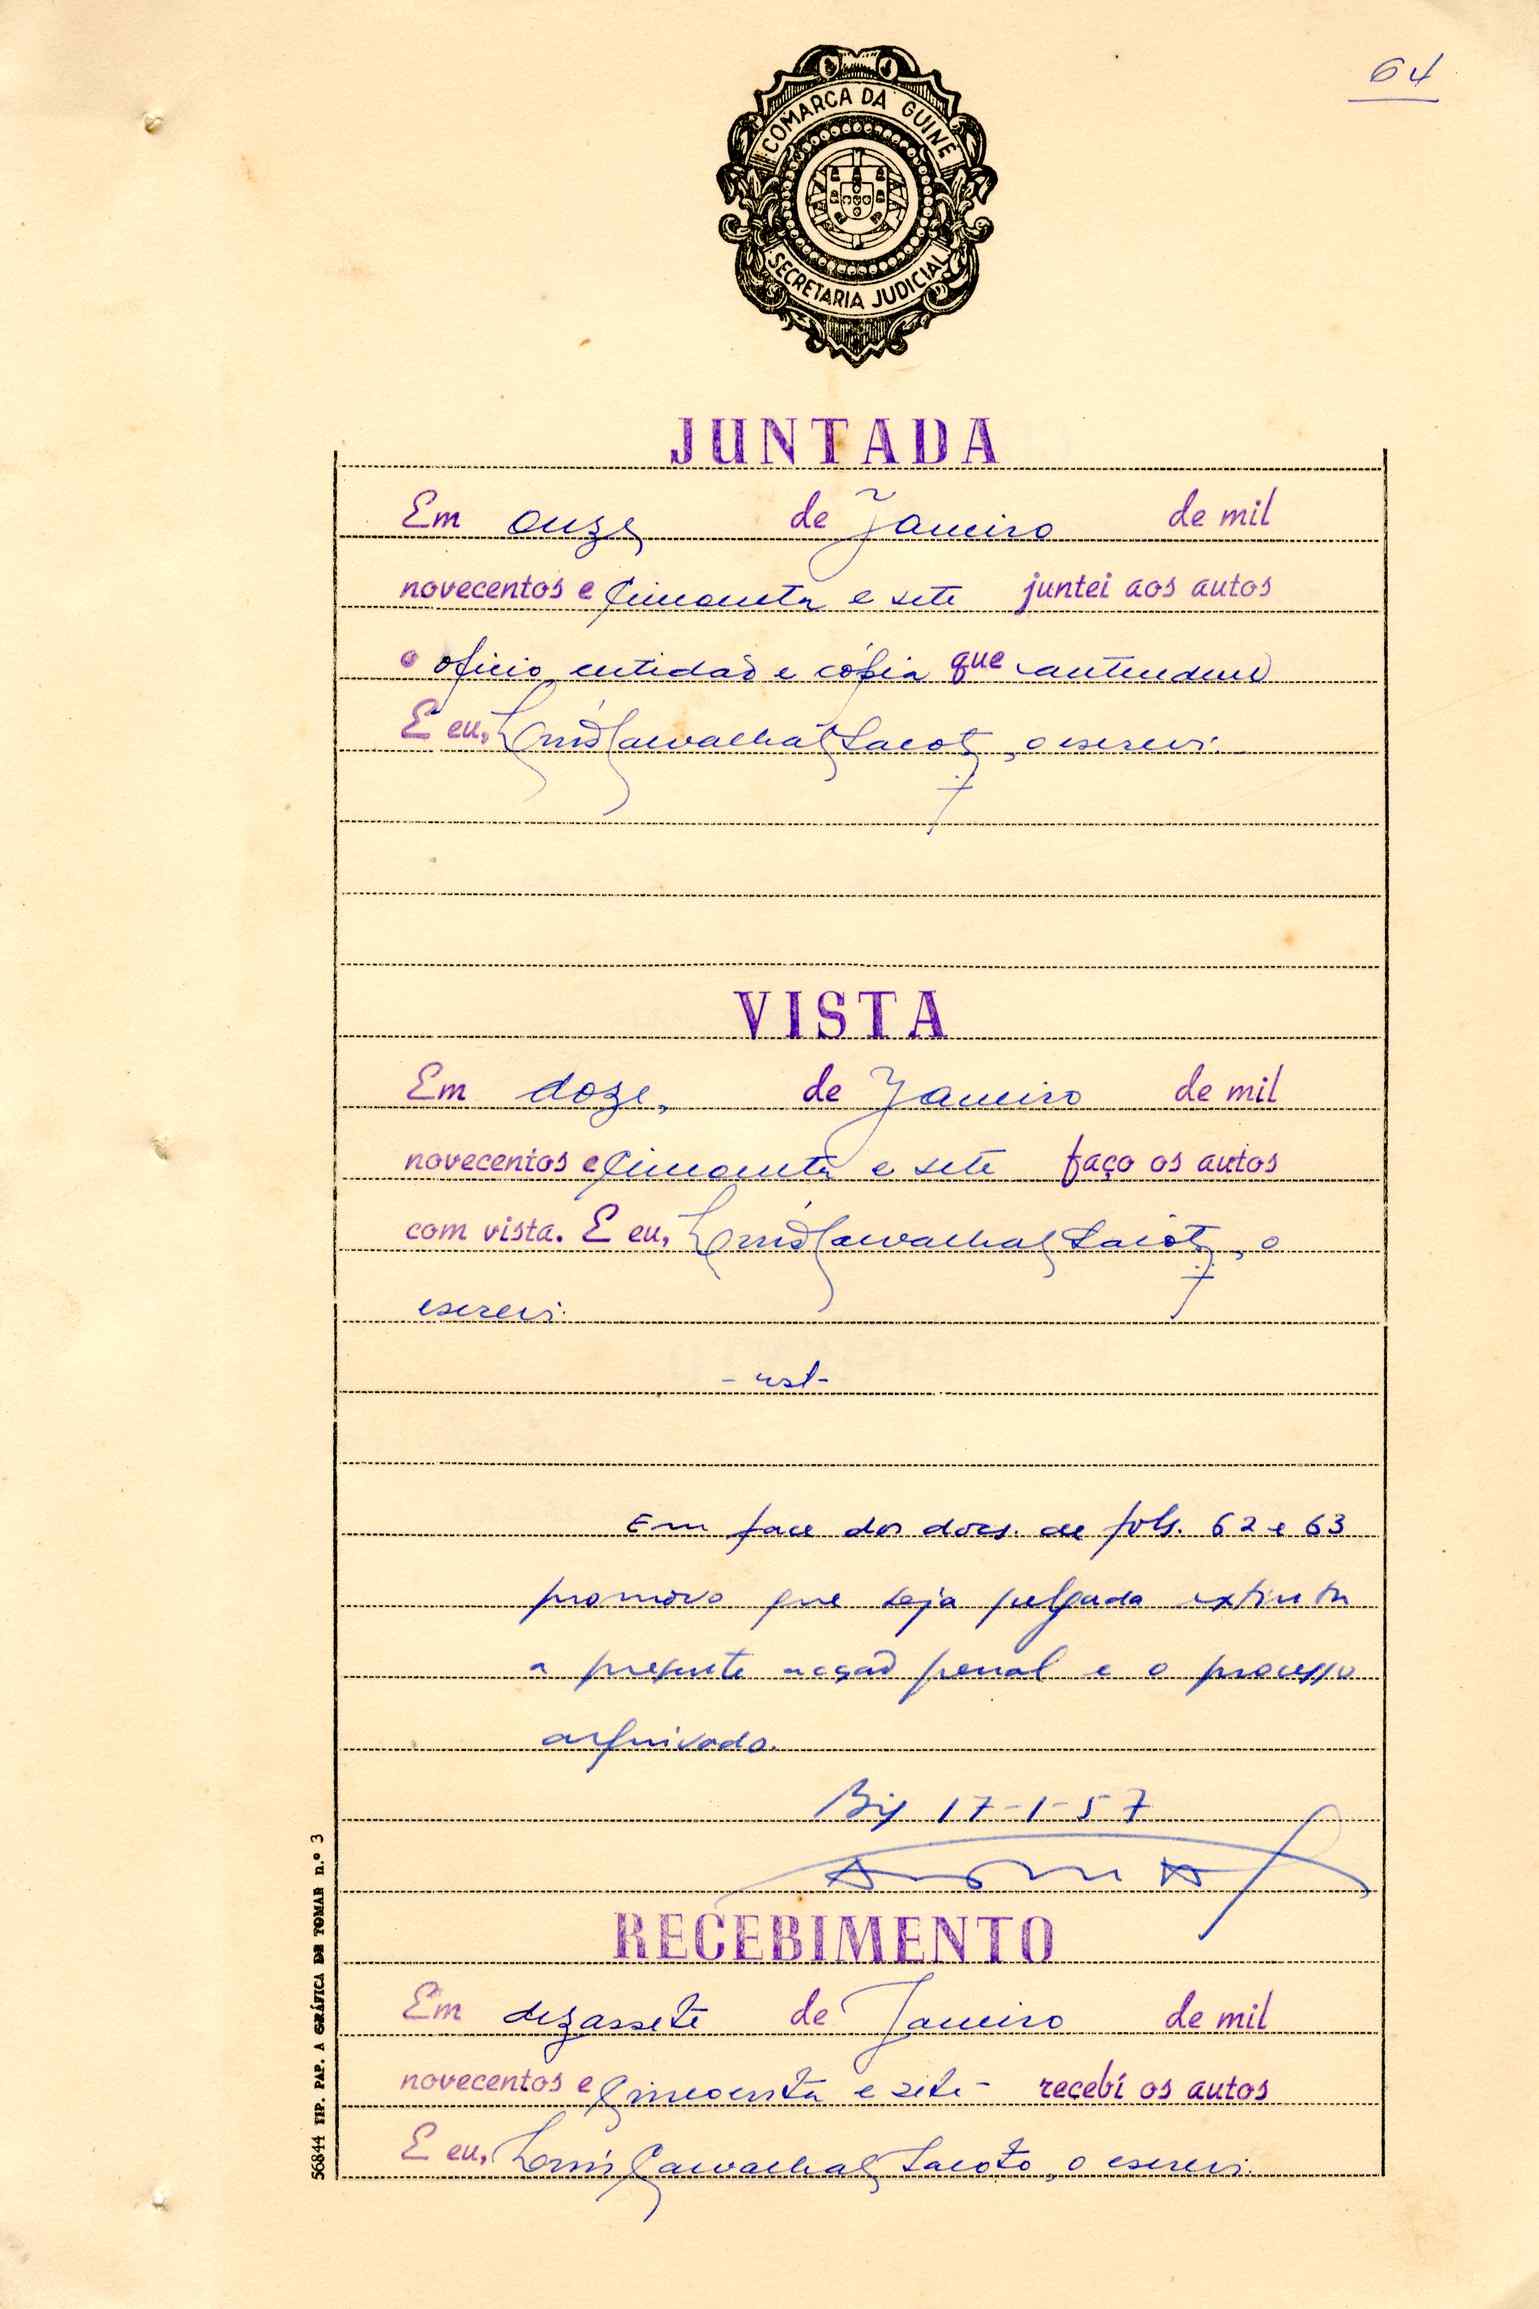 64
COMARCA DA GUINÉ
SECRETARIA JUDICIAL
JUNTADA
Em onze de Janeiro de mil
novecentos e cincoenta e sete juntei aos autos
o oficio, certidão e cópia que antecedem
E eu, Luís Carvalhal, o escrevi.
VISTA
Em doze, de Janeiro de mil
novecentos e cincoenta e sete faço os autos
com vista. E eu, Luís Carvalhal, o
escrevi.
Em face dos docs. de fols. 62 e 63
promovo que seja julgada extinta
a presente acção penal e o processo
arquivado.
Bis 17-1-57
RECEBIMENTO
Em dezassete de Janeiro de mil
novecentos e cincoenta e sete - recebi os autos
E eu, Luís Carvalhal, o escrevi.
56844 TIP. PAP. A GRÁFICA DE TOMAR n.º 3